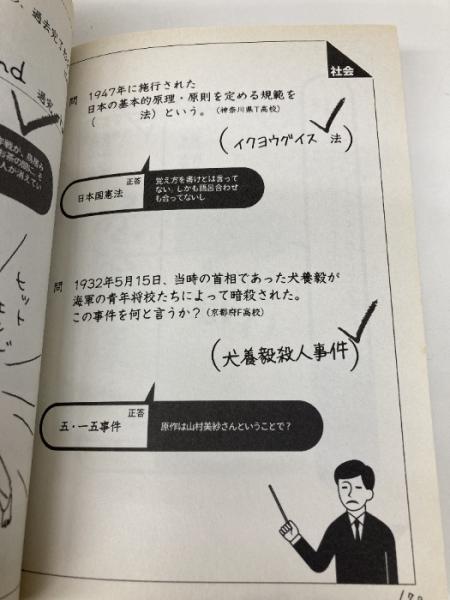 社会
問 1947年に施行された
日本の基本的原理・原則を定める規範を
( 法)という。(神奈川県T高校)
(イクヨウグイス 法)
正答
日本国憲法
覚え方を書けとは言って
ない。しかも語呂合わせ
も合ってないし
問 1932年5月15日、当時の首相であった犬養毅が
海軍の青年将校たちによって暗殺された。
この事件を何と言うか?(京都府F高校)
(犬養毅殺人事件)
正答
五・一五事件
原作は山村美紗さんということで?
nd
ヒット